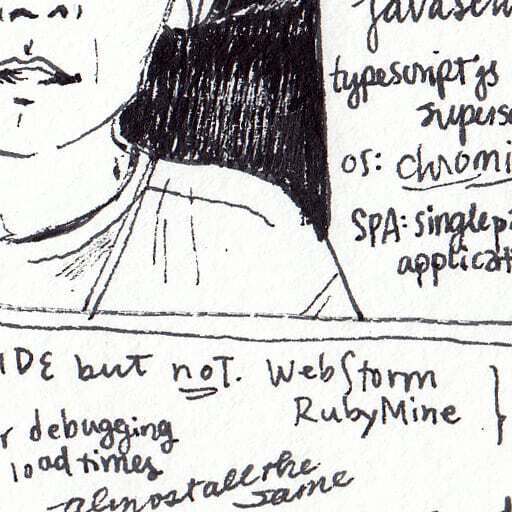 javascri
typescript js
supers
os: chromi
SPA: single pa
applicati
IDE but not. WebStorm
RubyMine
r debugging
load times
almost all the
same